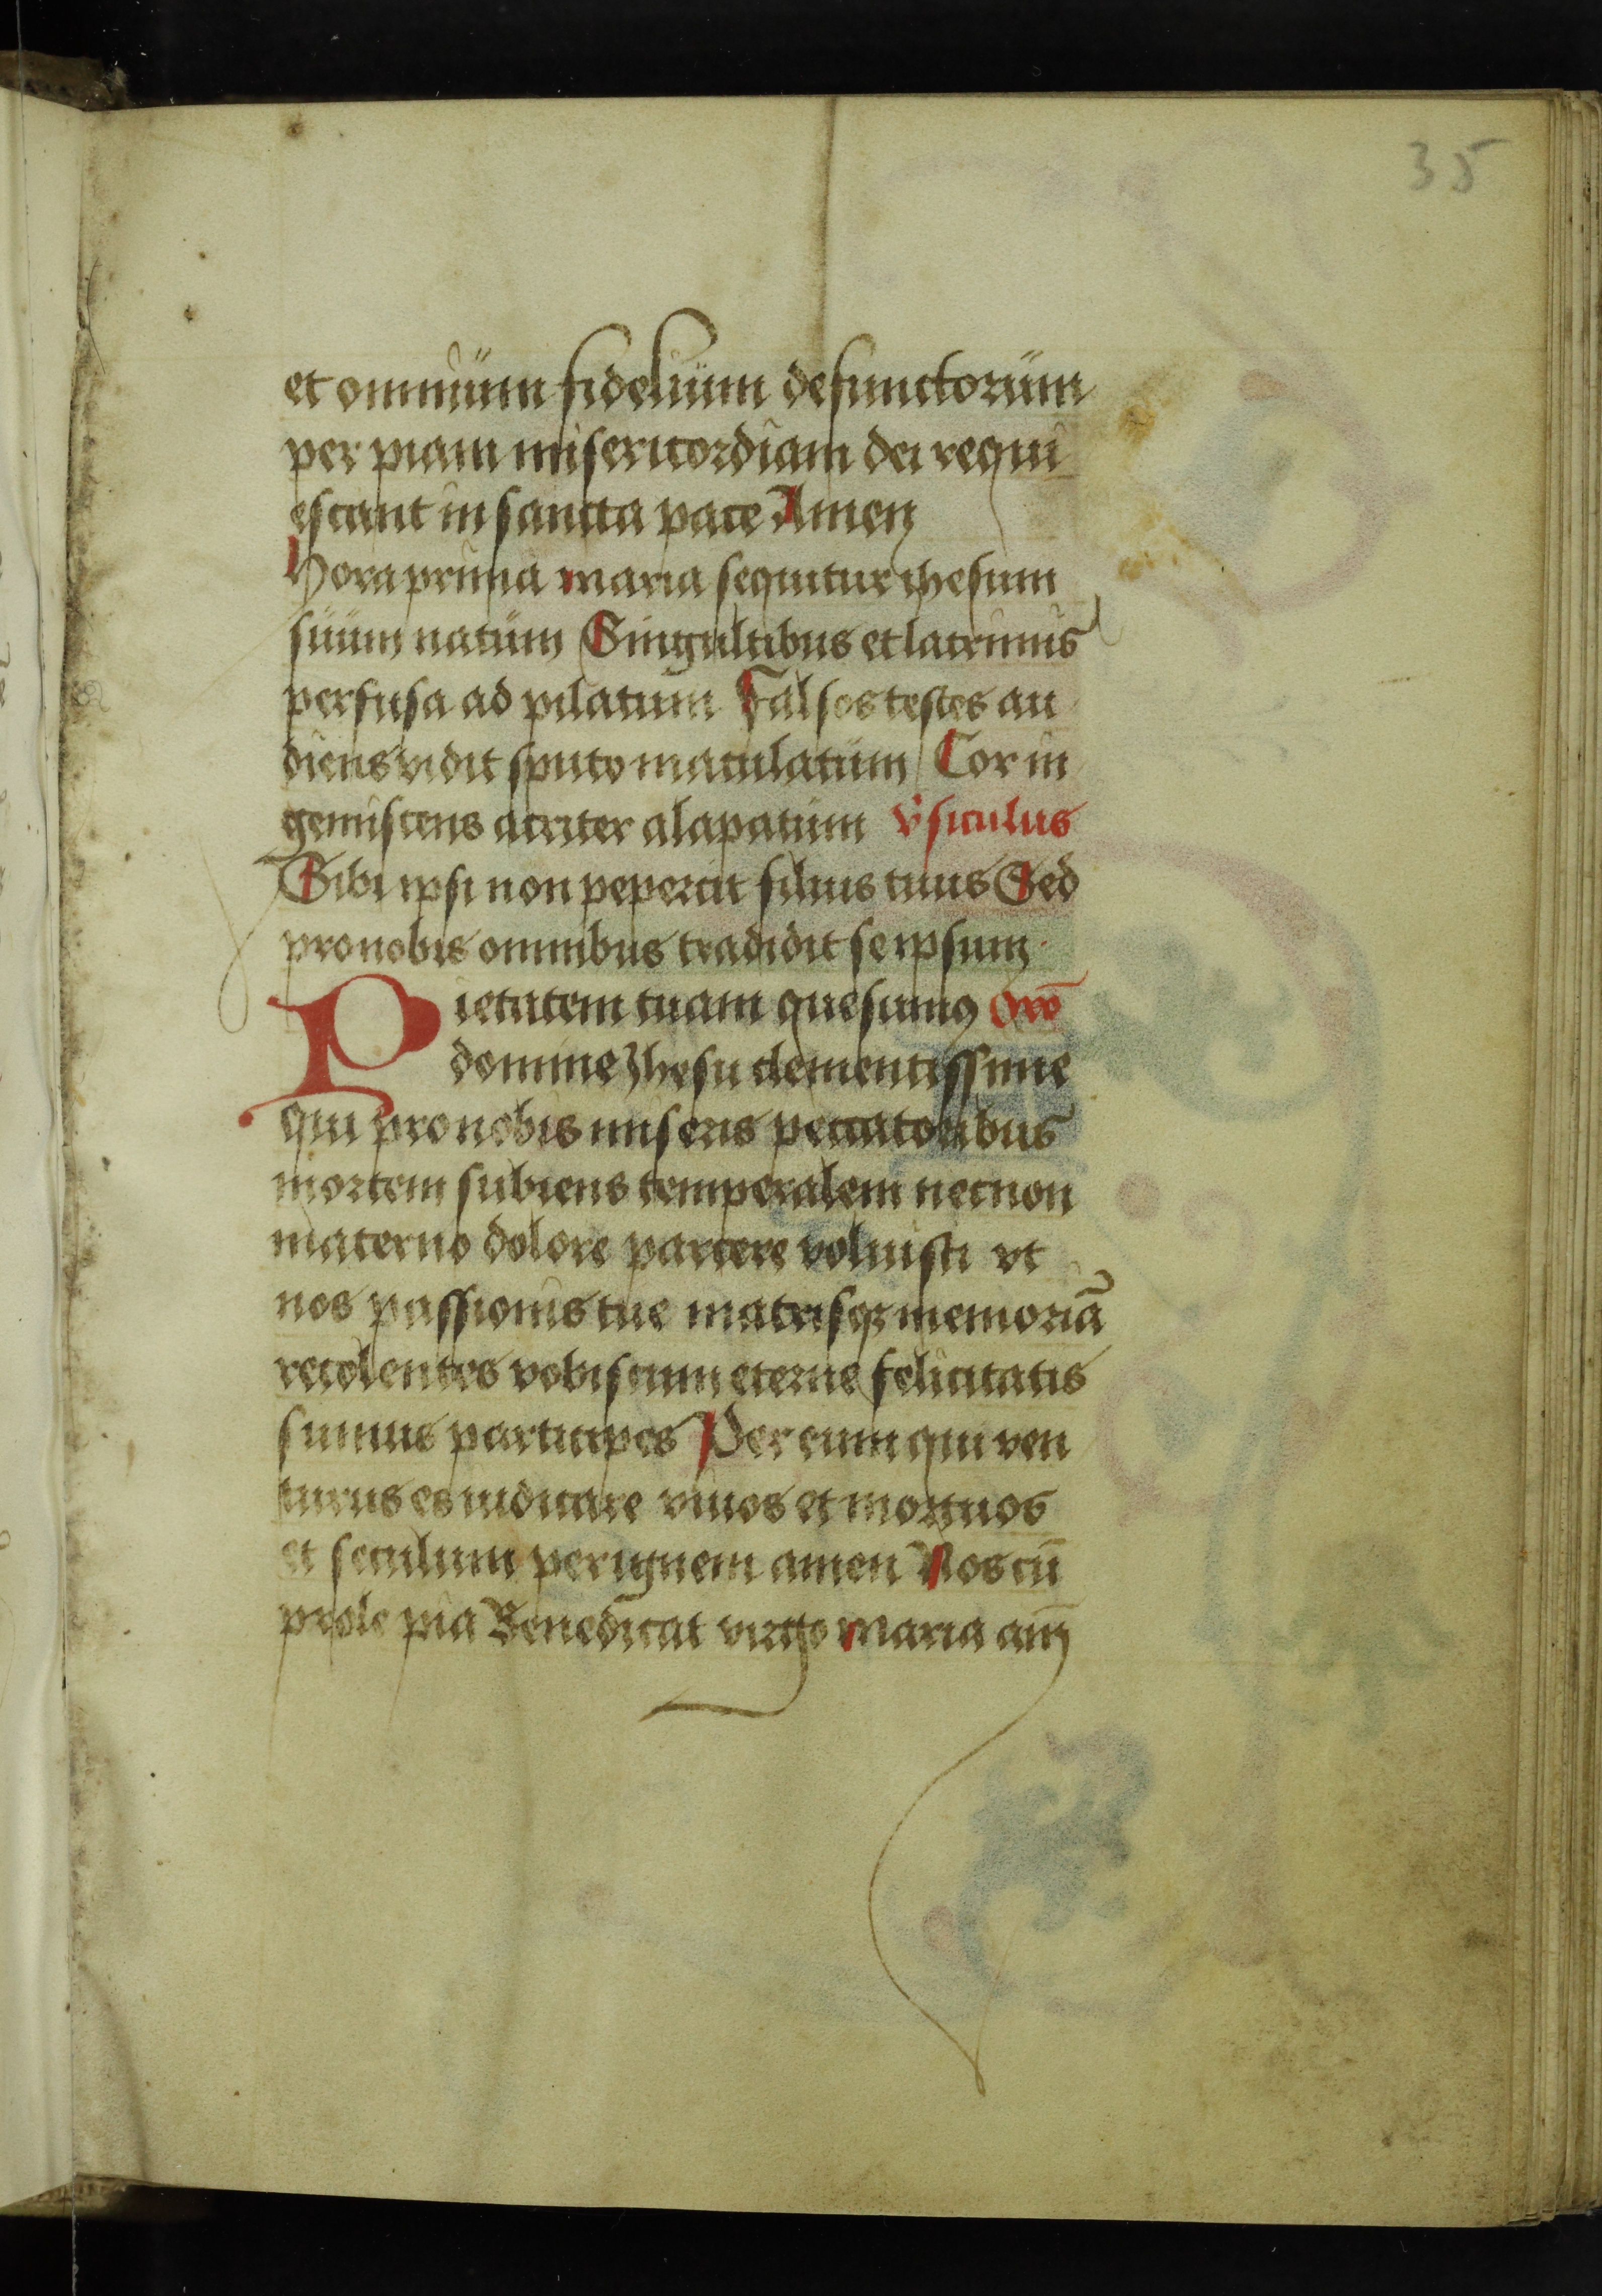 35
et omnium fidelium defunctorum
per piam misericordiam dei requi
escant in sancta pace Amen
Hora prima maria sequitur ihesum
suum natum Singultibus et lacrimis
perfusa ad pilatum Falsos testes au
diens vidit sputo maculatum Cor in
gemiscens acriter alapatum v̾siculus
Sibi ipsi non pepercit filius tuus Sed
pro nobis omnibus tradidit se ipsum
Pietatem tuam quesumꝰ Oro̅
domine Jhesu clementissime
qui pro nobis miseris peccatoribus
mortem subiens temperalem necnon
materno dolore parcere voluisti vt
nos passionis tue matrisqꝫ memoria̅
recolentes vobiscum eterne felicitatis
simus participes Per eum qui ven
turus es iudicare viuos et mortuos
et seculum per ignem amen Nos cu̅
prole pia Benedicat virgo maria am̅